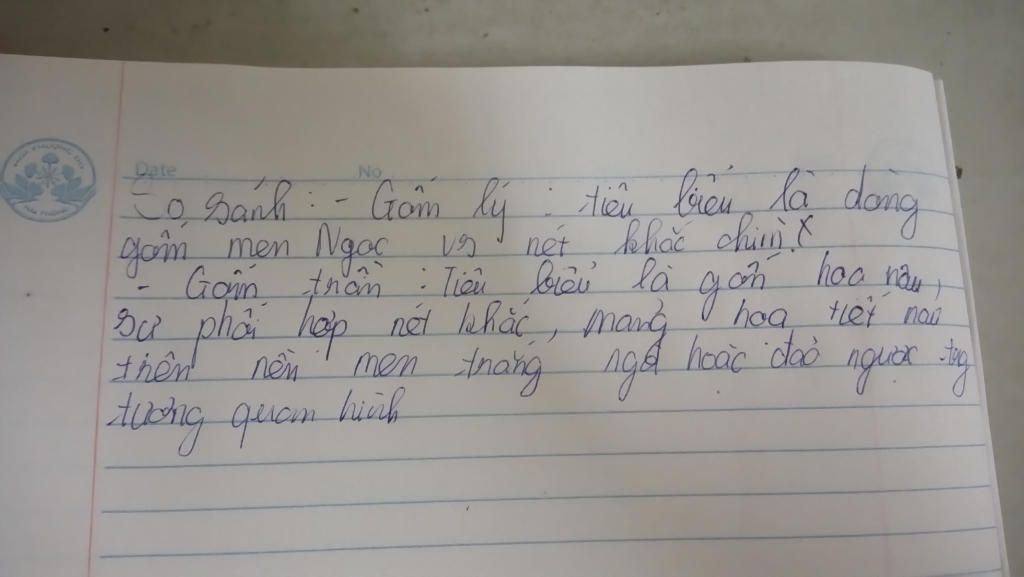 Date No
So sánh : - Gốm lý : tiêu biểu là dòng
gốm men Ngọc vs nét khắc chìm.
- Gốm trần : Tiêu biểu là gốm hoa nâu,
sự phối hợp nét khắc, mảng hoa tiết nâu
trên nền men trắng ngà hoặc đảo ngược tng
tương quan hình